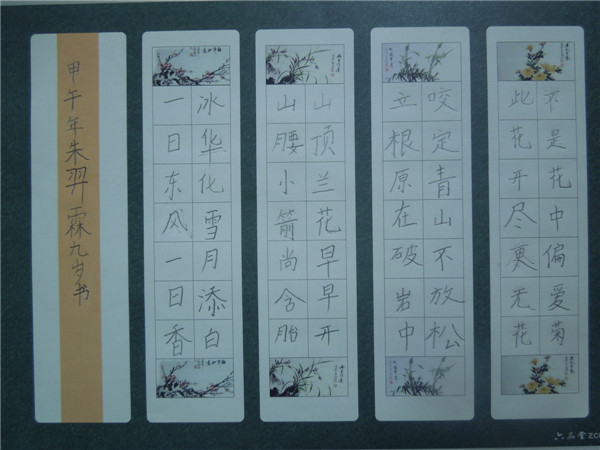 不是花中偏爱菊
此花开尽更无花
咬定青山不放松
立根原在破岩中
山顶兰花早早开
山腰小箭尚含胎
冰华化雪月添白
一日东风一日香
甲午年朱羿霖九岁书
六品堂